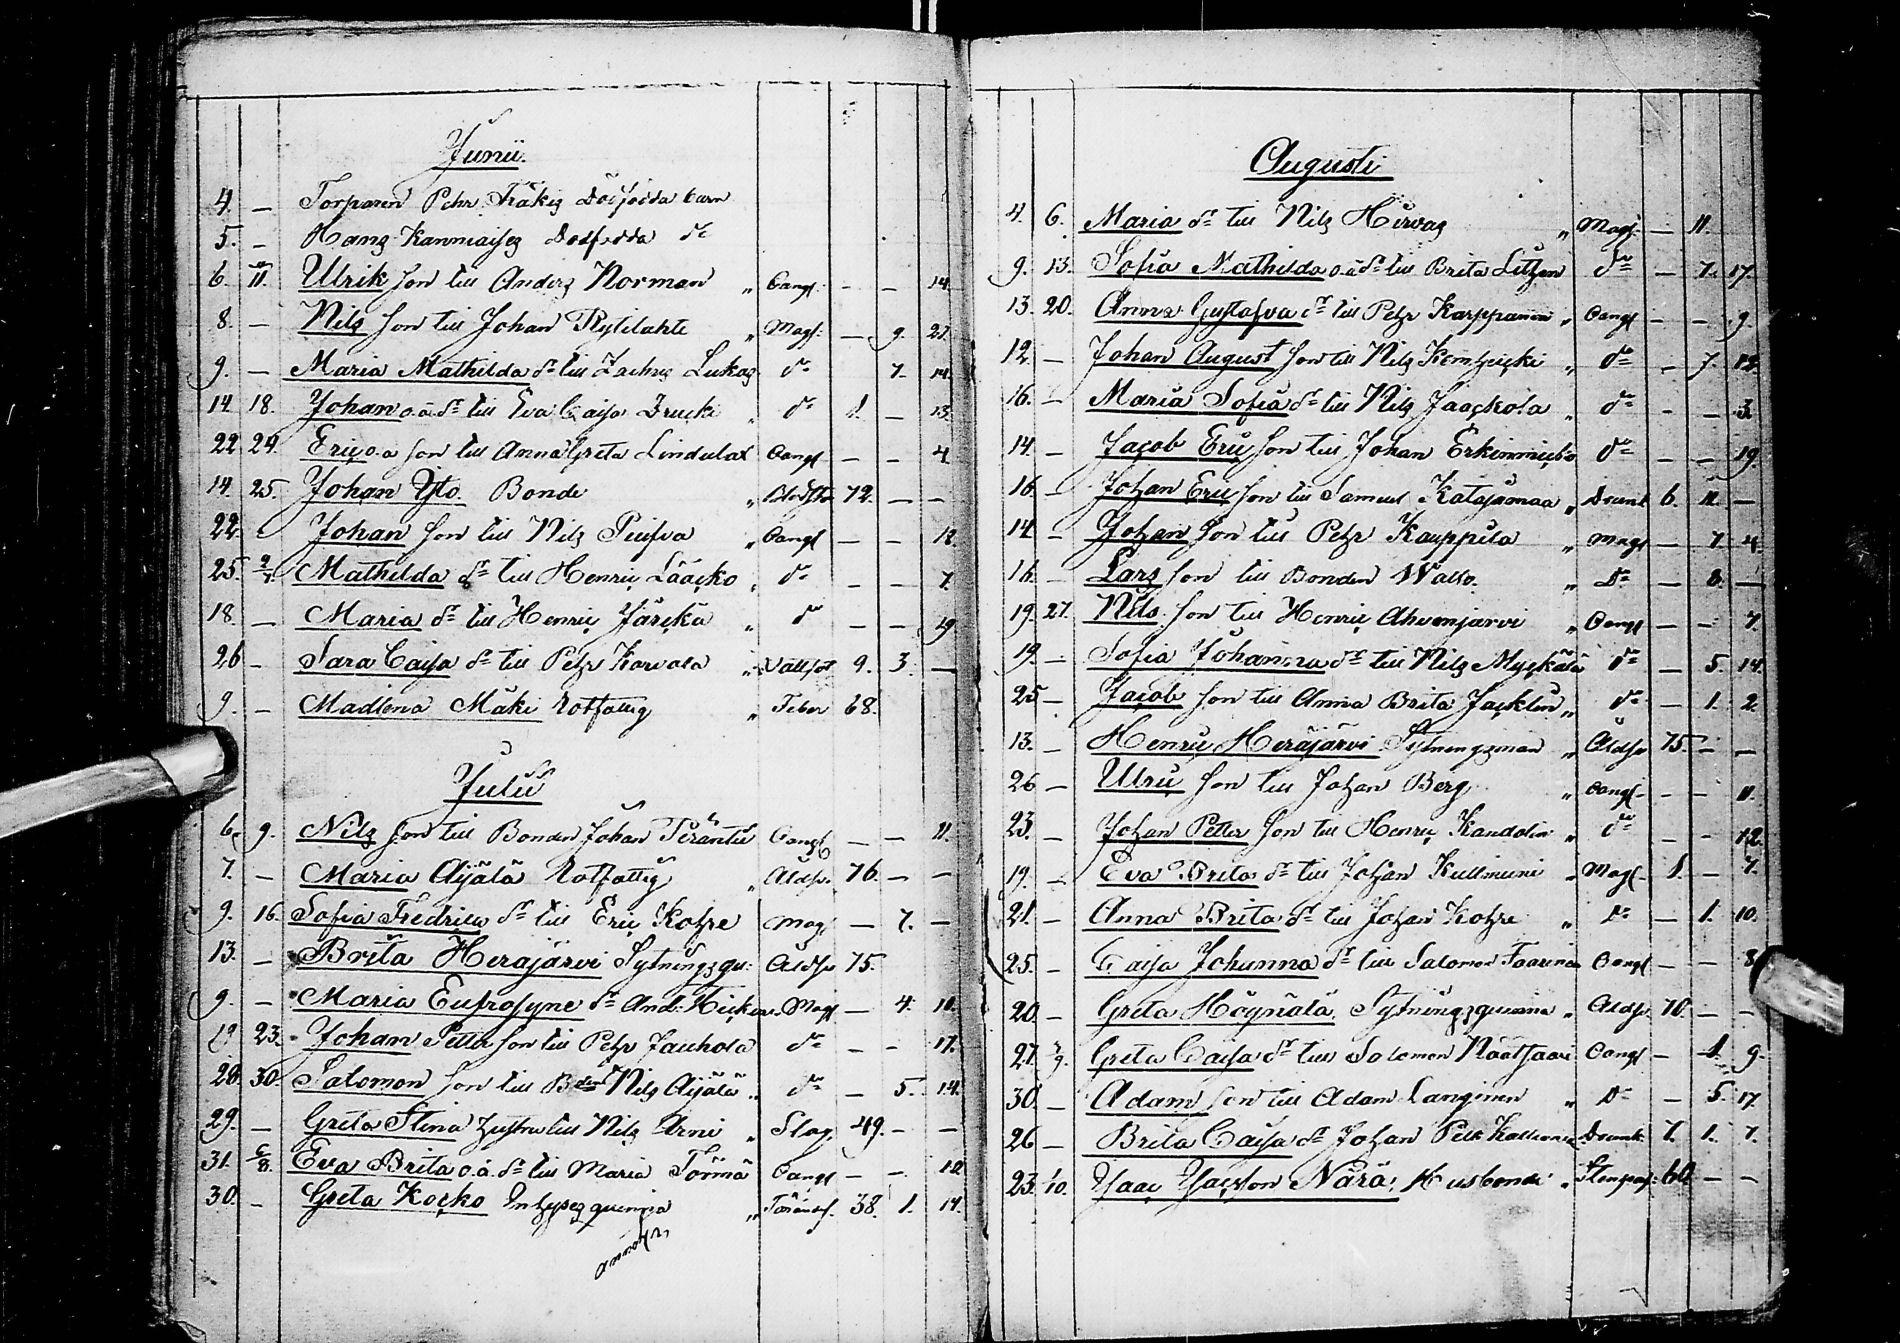 Junii.
4. — Torparen Pehr Träkis Dödfödda barn
5. — Hans Kanniaises Dödfödda do
6. 11. Ulrik son till Anders Norman " Oangf. — — 14.
8. — Nils son till Johan Rytilahti " Magf. — 9. 21.
9. — Maria Mathilda dr till Zachris Lukas do 7. 14.
14. 18. Johan o.ä. sn till Eva Caisa Drucki " do 1. — 13.
22. 24. Eric o.ä son till Anna Greta Lindulat Oangf — — 4
14. 25. Johan Yto. Bonde " 72. — —
22. — Johan son till Nils " Oangf — — 12.
25. 2/7. Mathilda dr till Henric Lääcko " do — — 7.
18. — Maria dr till Henric Järickä " do — — 19.
26 — Sara Caisa dr till Pehr Karvola " 9. 3. —
9. — Madlena Mäki Rotfattig " Feber 68.
Julii
6. 9. Nils son till Bonden Johan Peränti Oangf — — 11.
7. — Maria Äijälä Rotfattig " Åldsv. 76. — —
9. 16. Sofia Fredrica dr till Eric Kohre " Mag — 7. —
13. — Brita Herajärvi Sytningsqv: Åldsv 75.
9. — Maria Eufrosyne dr And. Magf — 4. 10.
19 23. Johan Petter son till Pehr Jauhola do — — 17.
28. 30. Salomon son till Bden Nils Äijälä " do — 5. 14.
29. — Greta Stina hustru till Nils Arni " Slag. 49. — —
31. 6/8. Eva Brita o.ä. dr till Maria Törmä Oangf — — 12
30. — Greta Kocko Inhyses qvinna " 38. 1. 14.
Augusti
4. 6. Maria dr till Nils Hirvas " Magf. — 11.
9. 13. Sofia Mathilda o.ä dr till Brita Litzen do — 7. 17.
13. 20. Anna Gustafva dr till Pehr Karppanen " Oangf — — 9.
12. — Johan August son till Nils " do — 7. 12.
16. — Maria Sofia dr till Nils Jaackola " do — — 3.
14. — Jacob Eric son till Johan do — — 19.
16. — Johan Eric son till Samuel Katajamaa " Drunk 6. 11. —
14. — Johan son till Pehr Kauppila " Magf — 7. 4.
16. — Lars son till Bonden Wallo. " Do — 8. —
19. 27. Nils son till Henric Ahvenjärvi " Oangf — — 7.
19. — Sofia Johanna dr till Nils Myckälä do — 5. 14.
25 — Jacob son till Anna Brita Jacklin " do — 1. 2.
13. — Henric Herajärvi Sytningsman " Åldsv 75. — —
26 — Ulric son till Johan Berg " Oangf — — 11.
23. — Johan Petter son till Henric Kandolin " do — — 12.
19. — Eva Brita dr till Johan " Magf 1. — 7.
21. — Anna Brita dr till Johan Kohre " Do — 1. 10.
25. — Caisa Johanna dr till Salomon Oangf — — 8.
20. — Greta Höynälä Sytningsqvinna " Åldsv 70. — —
27. 3/9. Greta Caisa dr till Salomon Näätsaari Oangf — 1. 9.
30. — Adam son till Adam Langinen " Do — 5. 17.
26 — Brita Caisa dr Johan Pett Drunk 7. 1. 7.
23. 1/10. Isac Isacsson Närä. Husbonde " 60 — —